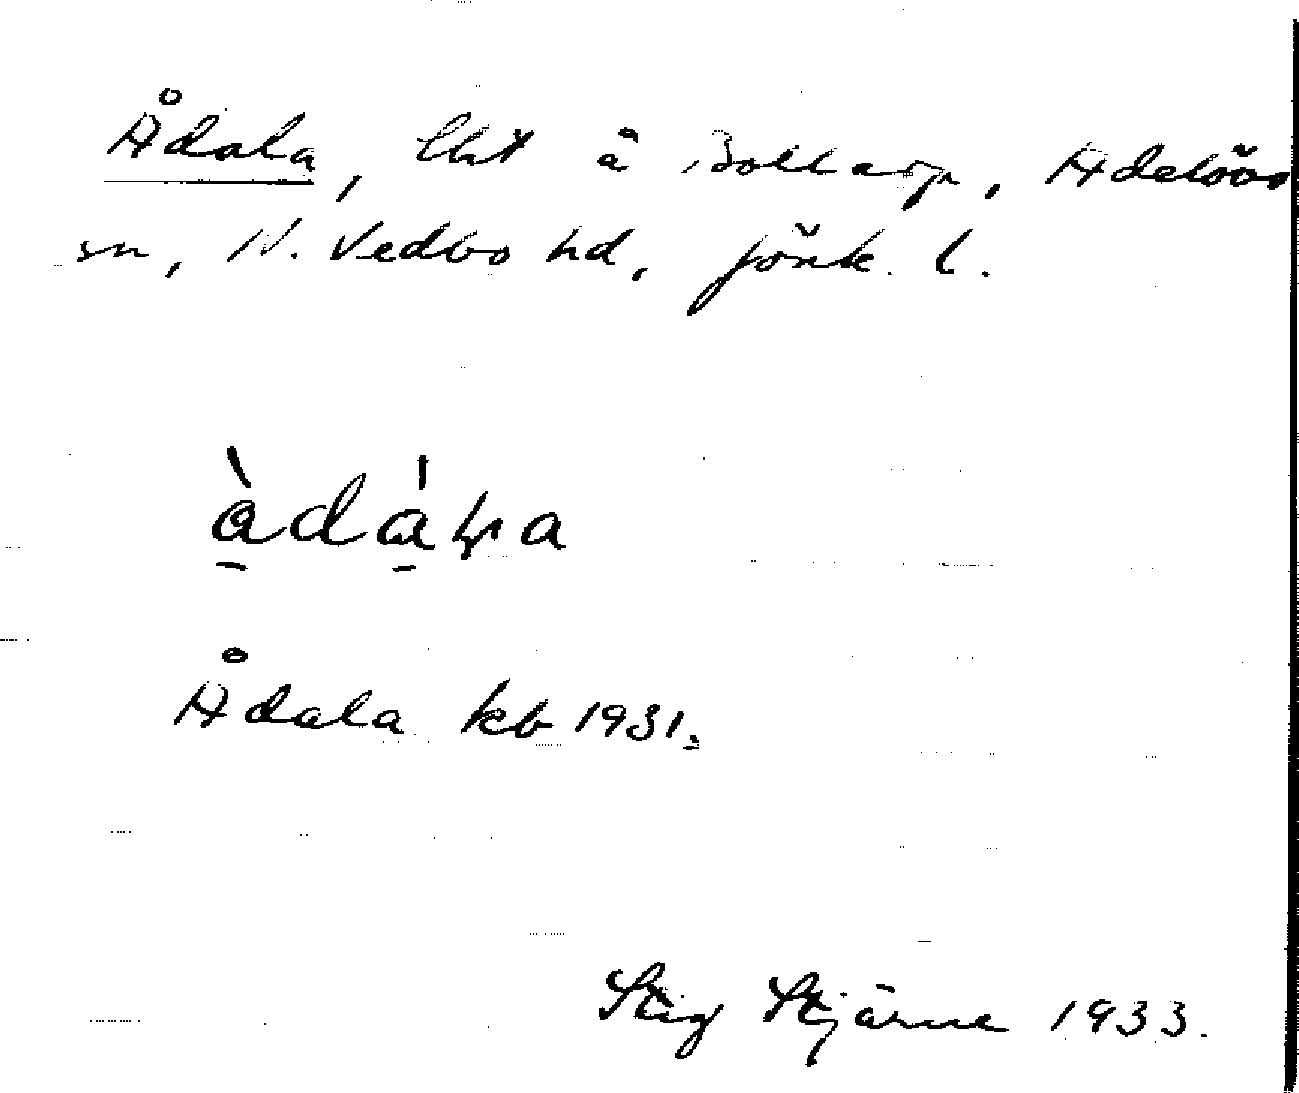 Ådala, lht å Bollarp, Adelövs
sn, N. Vedbo hd, Jönk. l.
àdáⱶa
Ådala kb 1931.
Stig Stjärne 1933.